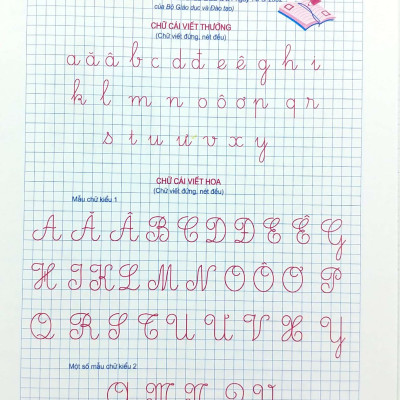 của Bộ Giáo dục và Đào tạo)
CHỮ CÁI VIẾT THƯỜNG
(Chữ viết đứng, nét đều)
a ă â b c d đ e ê g h i
k l m n o ô ơ p q r
s t u ư v x y
CHỮ CÁI VIẾT HOA
(Chữ viết đứng, nét đều)
Mẫu chữ kiểu 1
A Ă Â B C D Đ E Ê G
H I K L M N O Ô Ơ P
Q R S T U Ư V X Y
Một số mẫu chữ kiểu 2